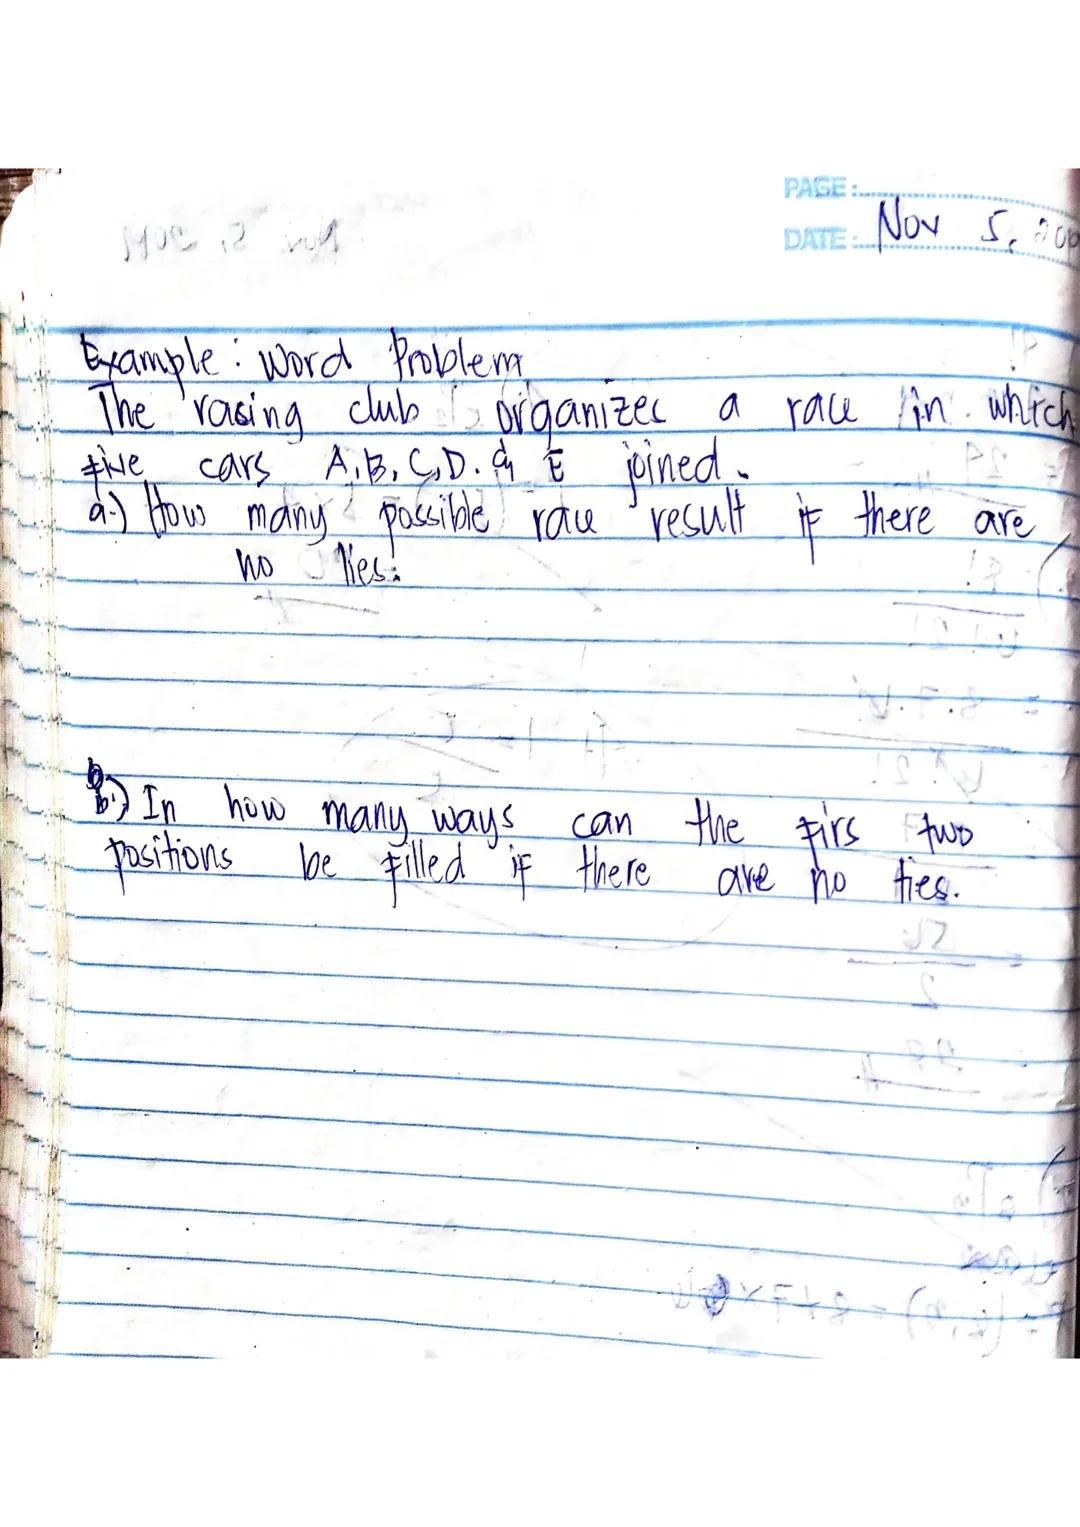 PAGE:
DATE: Nov 5,
Example: Word Problem
The rasing club organizes a race in which
five cars A, B, C, D. & E joined.
a.) How many possible race result if there are
no ties.
b.) In how many ways can the firs two
positions be filled if there are no ties.